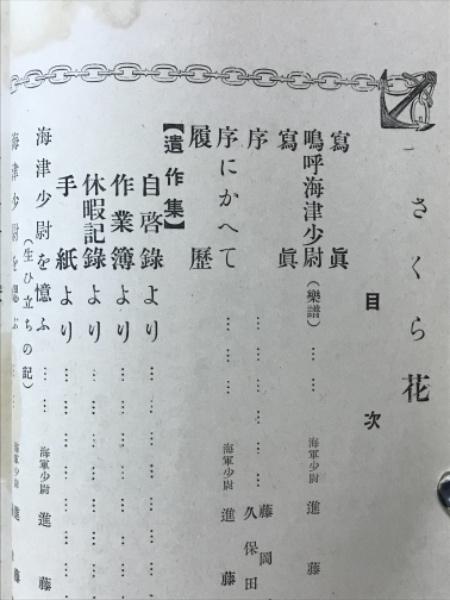 さくら花
目次
寫眞
嗚呼海津少尉(樂譜)……海軍少尉 進藤
寫眞
序………………藤岡
久保田
序にかへて……海軍少尉 進藤
履歴
【遺作集】
自啓錄より………
作業簿より………
休暇記錄より………
手紙より………
海津少尉を憶ふ……海軍少尉 進藤
(生ひ立ちの記)
海津少尉を偲ぶ……海軍少尉